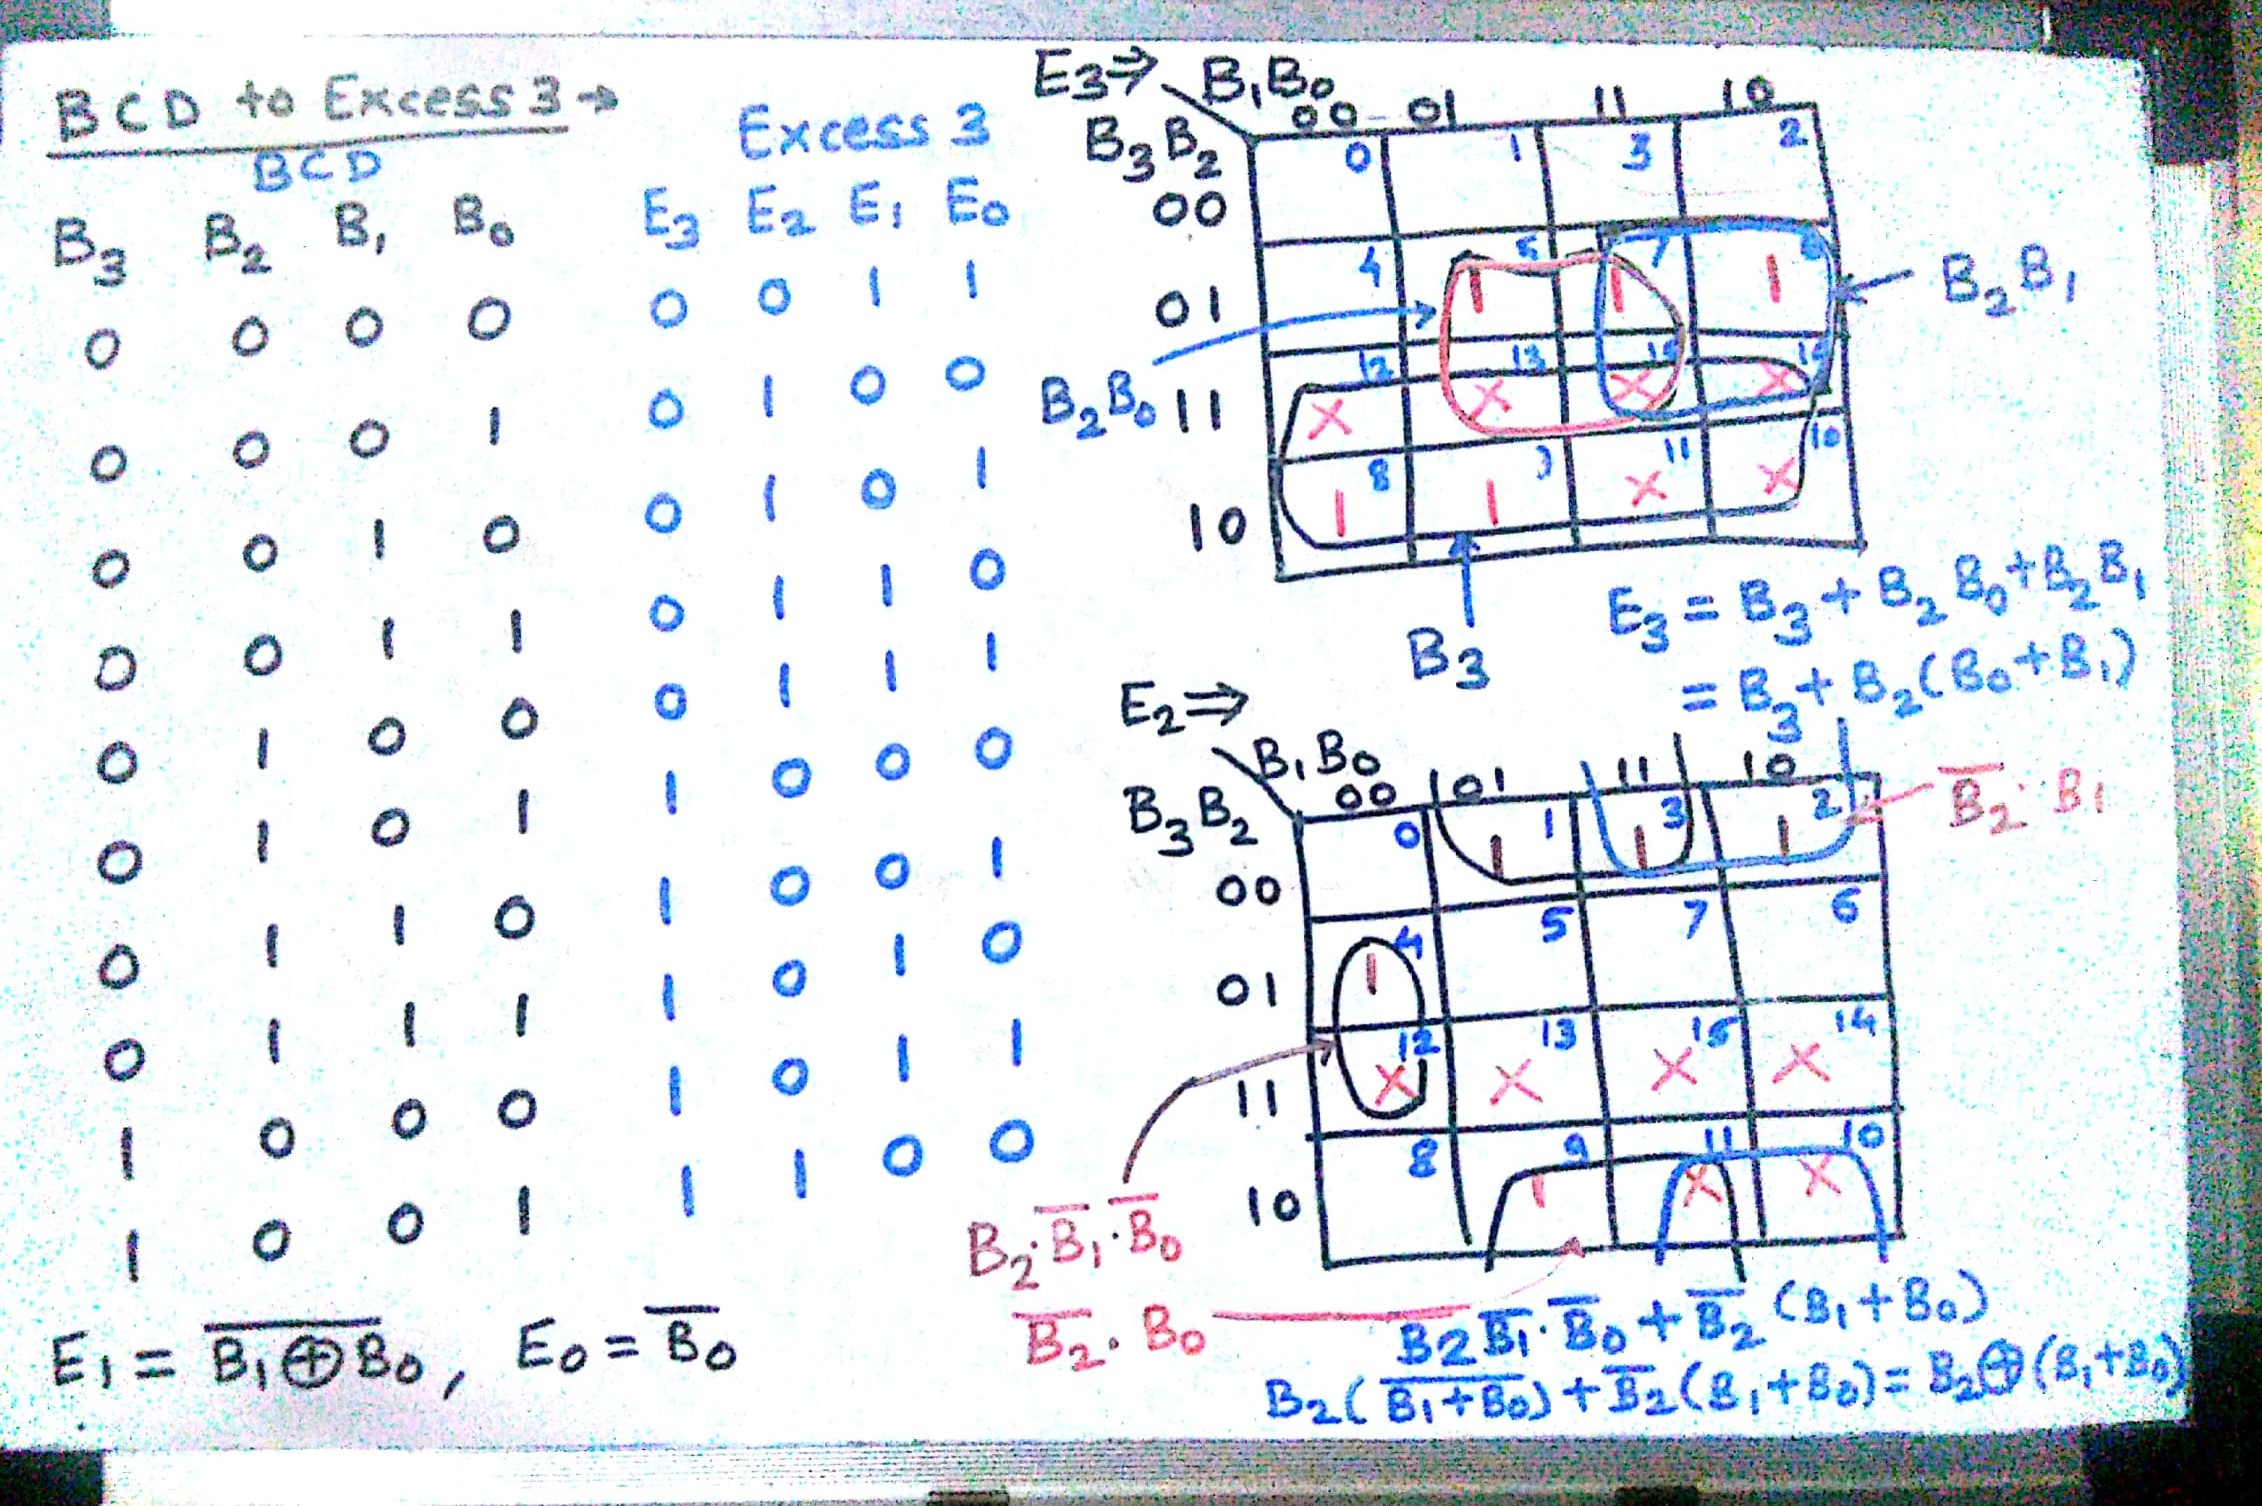 BCD to Excess 3 →
BCD Excess 3
B₃ B₂ B₁ B₀ E₃ E₂ E₁ E₀
0 0 0 0 0 0 1 1
0 0 0 1 0 1 0 0
0 0 1 0 0 1 0 1
0 0 1 1 0 1 1 0
0 1 0 0 0 1 1 1
0 1 0 1 1 0 0 0
0 1 1 0 1 0 0 1
0 1 1 1 1 0 1 0
1 0 0 0 1 0 1 1
1 0 0 1 1 1 0 0
E₁ = \overline{B₁⊕B₀}, E₀ = \overline{B₀}
E3⇒ B₁B₀
00 01 11 10
B₃B₂
00 0 1 3 2
01 4 5 1 7 1 6 1
B₂B₁
B₂B₀
11 12 X 13 X 15 X 14 X
10 8 1 9 1 11 X 10 X
B₃
E₃ = B₃ + B₂B₀ + B₂B₁
= B₃ + B₂(B₀+B₁)
E₂⇒
B₁B₀
00 01 11 10
B₃B₂
00 0 1 1 3 1 2 1
\overline{B₂}·B₁
01 4 1 5 7 6
11 12 X 13 X 15 X 14 X
10 8 9 1 11 X 10 X
B₂·\overline{B₁}·\overline{B₀}
\overline{B₂}·B₀
B2\overline{B₁}·\overline{B₀} + \overline{B₂}(B₁+B₀)
B₂(\overline{B₁+B₀}) + \overline{B₂}(B₁+B₀) = B₂⊕(B₁+B₀)